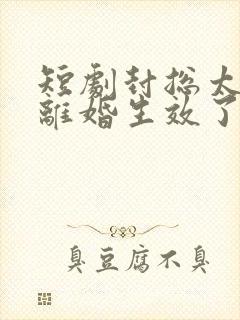 短劇封總太
離婚生效了
臭豆腐不臭